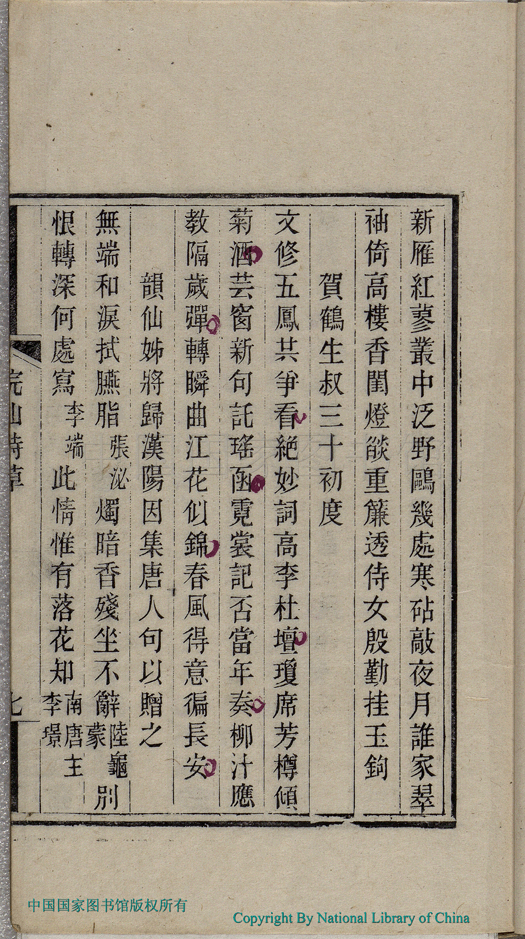 新雁紅蓼叢中泛野鷗幾處寒砧敲夜月誰家翠
袖倚高樓香閨燈燄重簾透侍女殷勤挂玉鉤
賀鶴生叔三十初度
文修五鳳共爭看絶妙詞高李杜壇瓊席芳樽傾
菊酒芸窗新句託瑤函霓裳記否當年奏柳汁應
教隔歲彈轉瞬曲江花似錦春風得意徧長安
韻仙姊將歸漢陽因集唐人句以贈之
無端和淚拭臙脂張泌燭暗香殘坐不辭陸龜蒙別
恨轉深何處寫李端此情惟有落花知南唐主李璟
浣山詩草
七
中国国家图书馆版权所有
Copyright By National Library of China